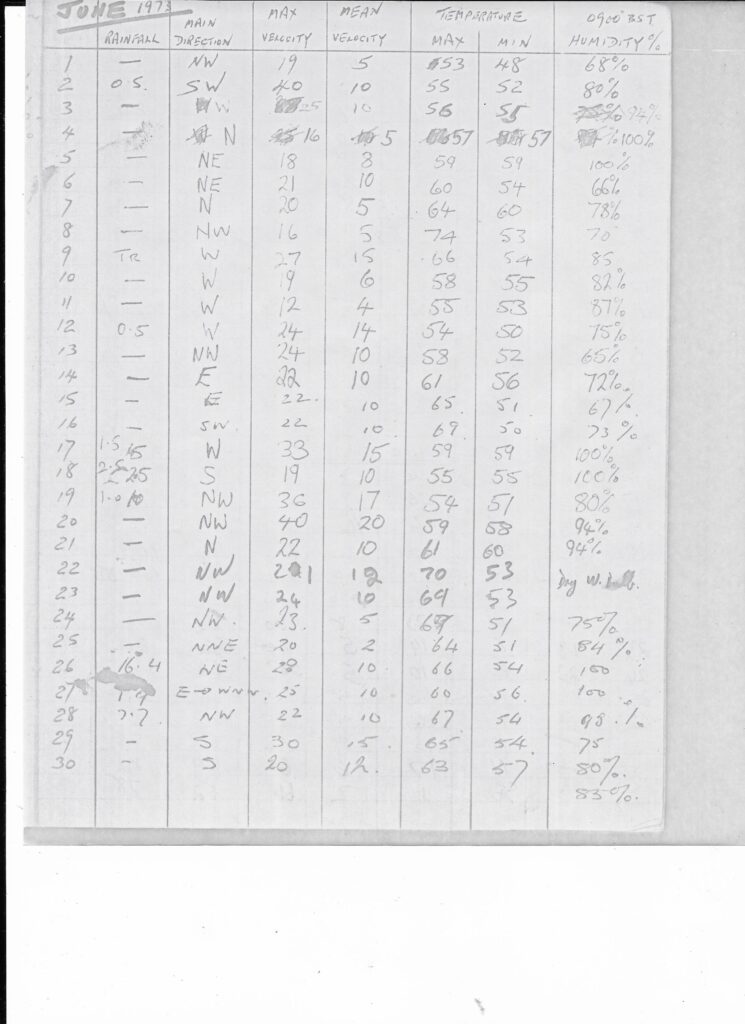 JUNE 1973
RAINFALL MAIN DIRECTION MAX VELOCITY MEAN VELOCITY TEMPERATURE MAX MIN 0900 BST HUMIDITY %
1 — NW 19 5 53 48 68%
2 0.5. SW 40 10 55 52 80%
3 — W 25 10 56 55 94%
4 — N 16 5 57 57 100%
5 — NE 18 8 59 59 100%
6 — NE 21 10 60 54 66%
7 — N 20 5 64 60 78%
8 — NW 16 5 74 53 70
9 TR W 27 15 66 54 85
10 — W 19 6 58 55 82%
11 — W 12 4 55 53 87%
12 0.5 W 24 14 54 50 75%
13 — NW 24 10 58 52 65%
14 — E 22 10 61 56 72%.
15 — E 22. 10 65 51 67%
16 — SW. 22 10 69 50 73%
17 1.5 W 33 15 59 59 100%
18 2.5 25 S 19 10 55 55 100%
19 1.0 10 NW 36 17 54 51 80%
20 — NW 40 20 59 58 94%
21 — N 22 10 61 60 94%
22 — NW 12 70 53 Dry W.
23 — NW 24 10 69 53
24 — NW. 23 5 69 51 75%
25 — NNE 20 2 64 51 84%
26 16.4 NE 28 10 66 54 100
27 25 10 60 56 100
28 NW 22 10 67 54 98.%
29 - S 30 15. 65 54. 75
30 - S 20 12. 63 57 80%.
83%.